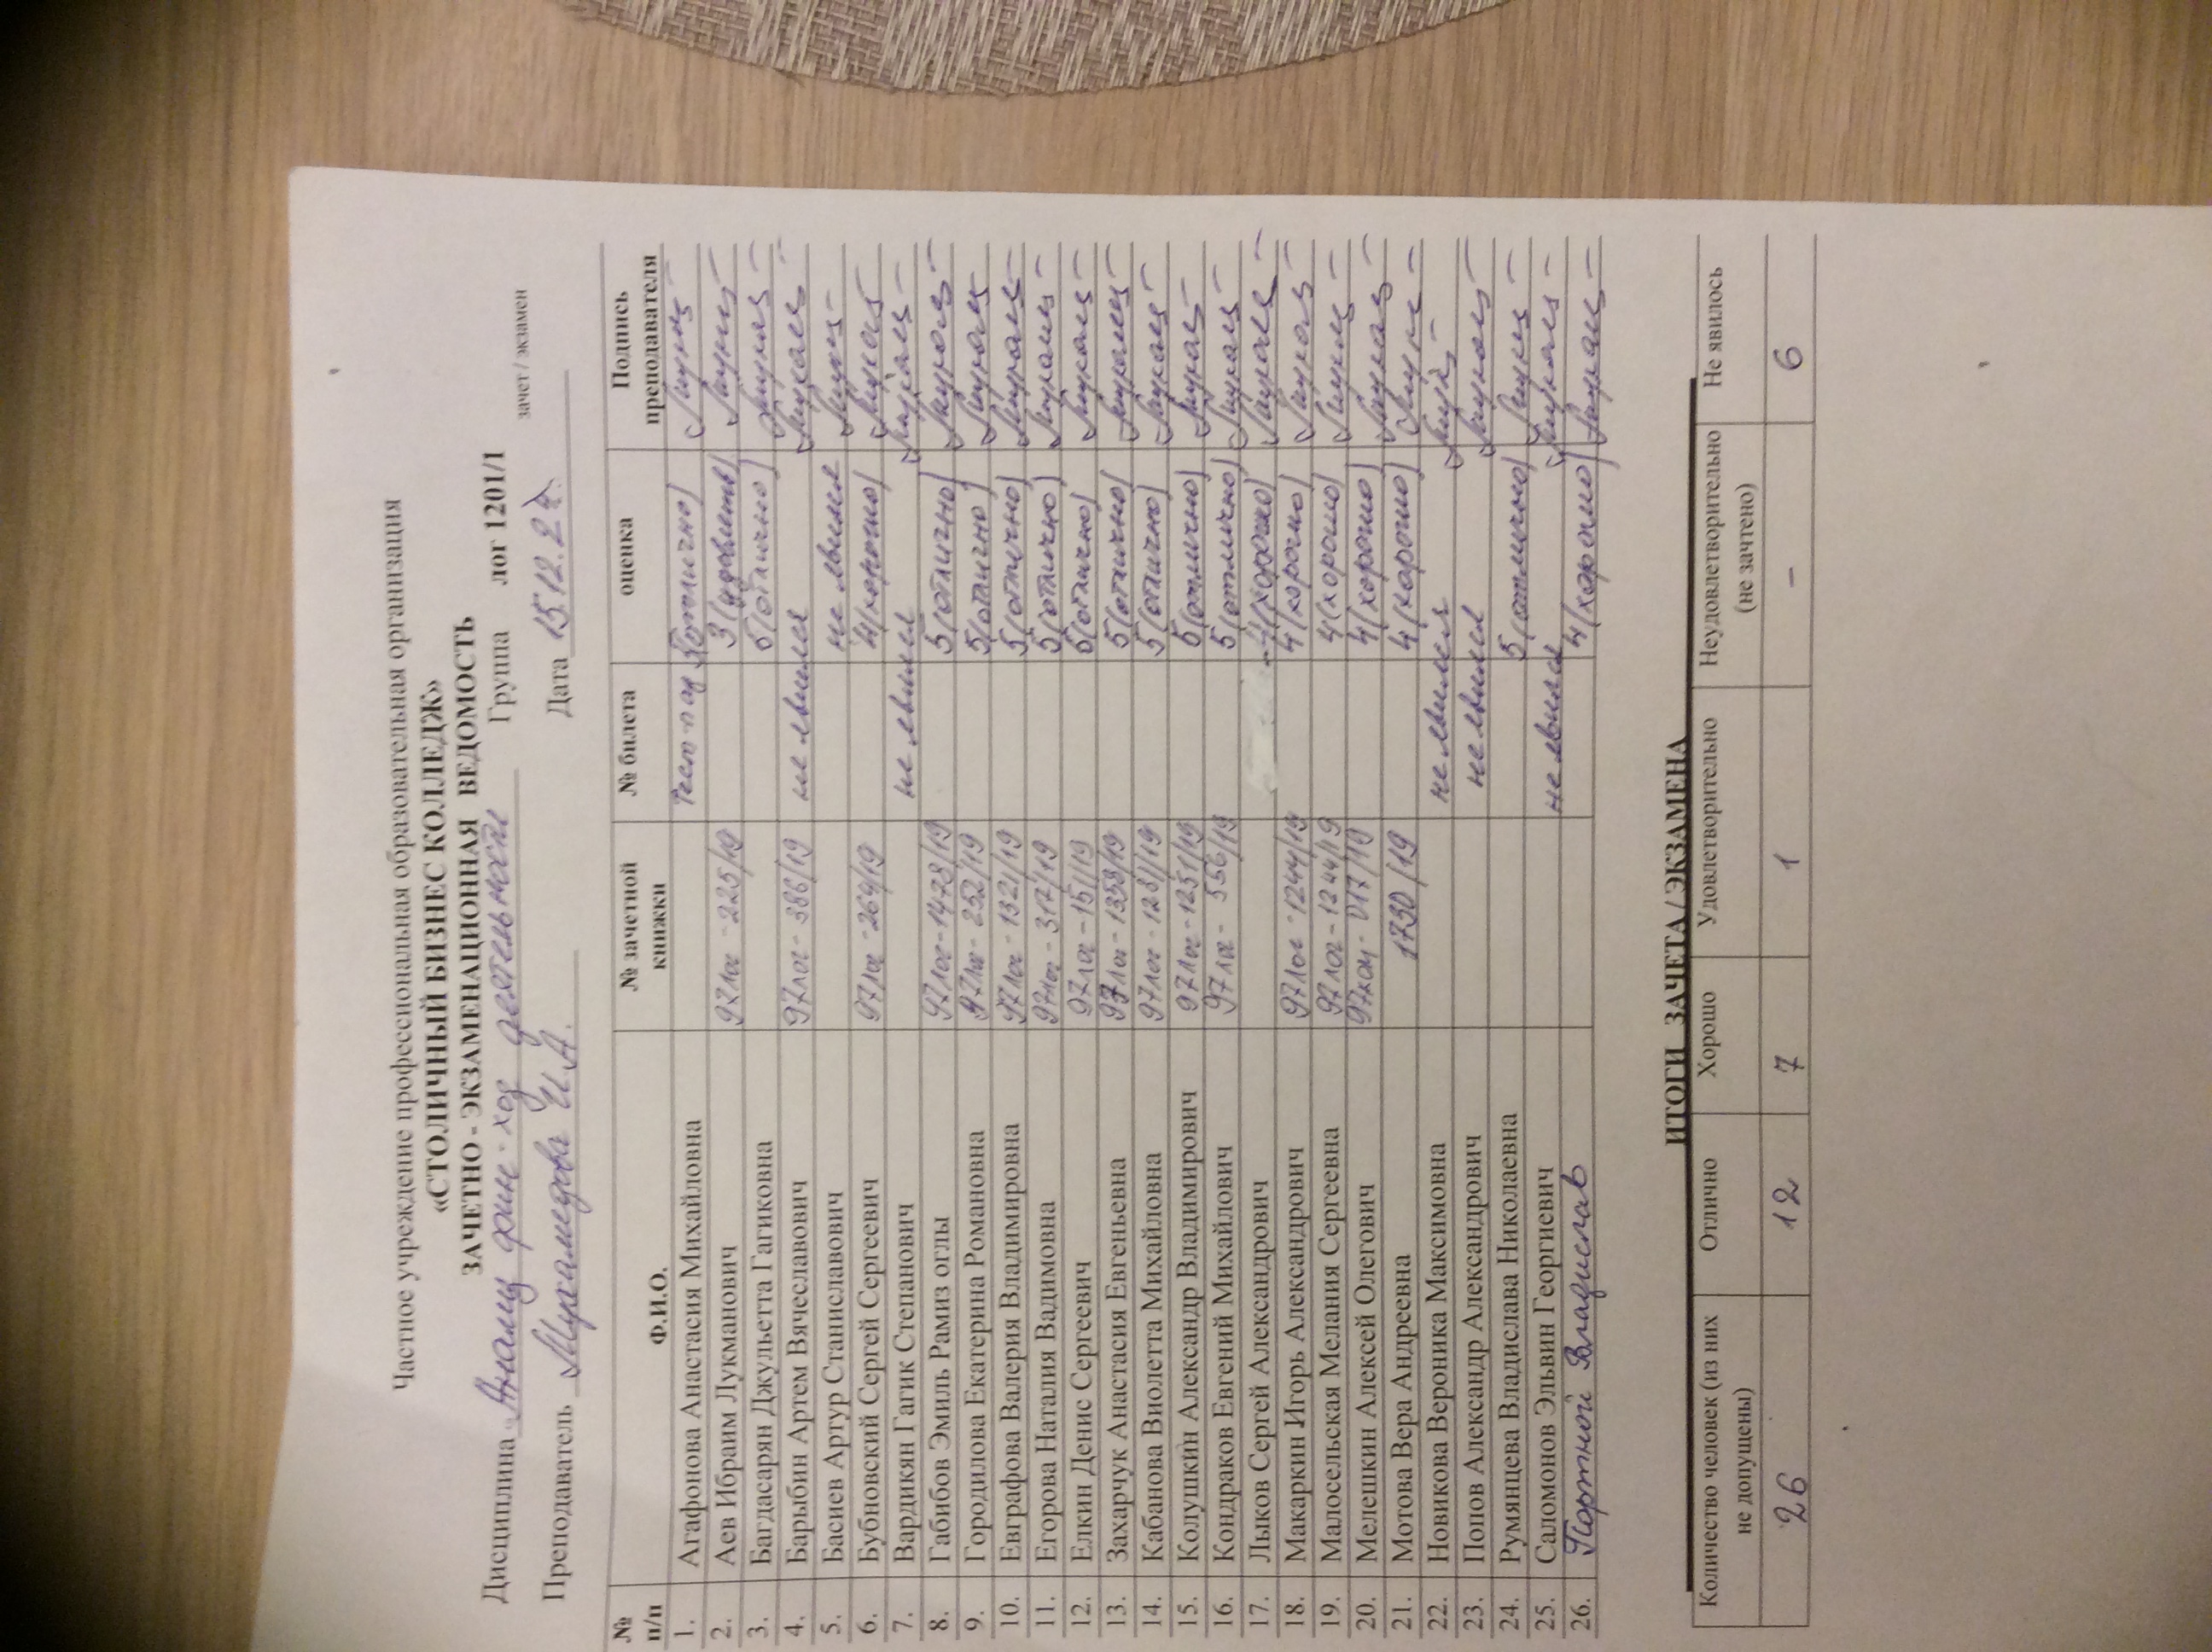 Частное учреждение профессиональная образовательная организация
«СТОЛИЧНЫЙ БИЗНЕС КОЛЛЕДЖ»
ЗАЧЕТНО - ЭКЗАМЕНАЦИОННАЯ ВЕДОМОСТЬ
Дисциплина Анализ фин-хоз деятельности Группа лог 1201/1
зачет / экзамен
Преподаватель Мухамедова И.А. Дата 15.12.2
№ п/п Ф.И.О. № зачетной книжки № билета оценка Подпись преподавателя
1. Агафонова Анастасия Михайловна 5(отлично)
2. Аев Ибраим Лукманович 97лог-225/19 3(удовлетв)
3. Багдасарян Джульетта Гагиковна 5(отлично)
4. Барыбин Артем Вячеславович 97лог-386/19 не явился
5. Басиев Артур Станиславович не явился
6. Бубновский Сергей Сергеевич 97лог-264/19 4(хорошо)
7. Вардикян Гагик Степанович не явился
8. Габибов Эмиль Рамиз оглы 97лог-1478/19 5(отлично)
9. Городилова Екатерина Романовна 97лог-252/19 5(отлично)
10. Евграфова Валерия Владимировна 97лог-1321/19 5(отлично)
11. Егорова Наталия Вадимовна 97лог-317/19 5(отлично)
12. Елкин Денис Сергеевич 97лог-151/19 5(отлично)
13. Захарчук Анастасия Евгеньевна 97лог-1358/19 5(отлично)
14. Кабанова Виолетта Михайловна 97лог-1281/19 5(отлично)
15. Колушкин Александр Владимирович 97лог-1251/19 5(отлично)
16. Кондраков Евгений Михайлович 97лог-556/19 5(отлично)
17. Лыков Сергей Александрович 4(хорошо)
18. Макаркин Игорь Александрович 97лог-1244/19 4(хорошо)
19. Малосельская Мелания Сергеевна 97лог-1244/19 4(хорошо)
20. Мелешкин Алексей Олегович 97ком-017/19 4(хорошо)
21. Мотова Вера Андреевна 1730/19 4(хорошо)
22. Новикова Вероника Максимовна не явился
23. Попов Александр Александрович не явился
24. Румянцева Владислава Николаевна 5(отлично)
25. Саломонов Эльвин Георгиевич не явился
26. Портной Владислав 4(хорошо)
ИТОГИ ЗАЧЕТА / ЭКЗАМЕНА
Количество человек (из них не допущены) Отлично Хорошо Удовлетворительно Неудовлетворительно (не зачтено) Не явилось
26 12 7 1 - 6